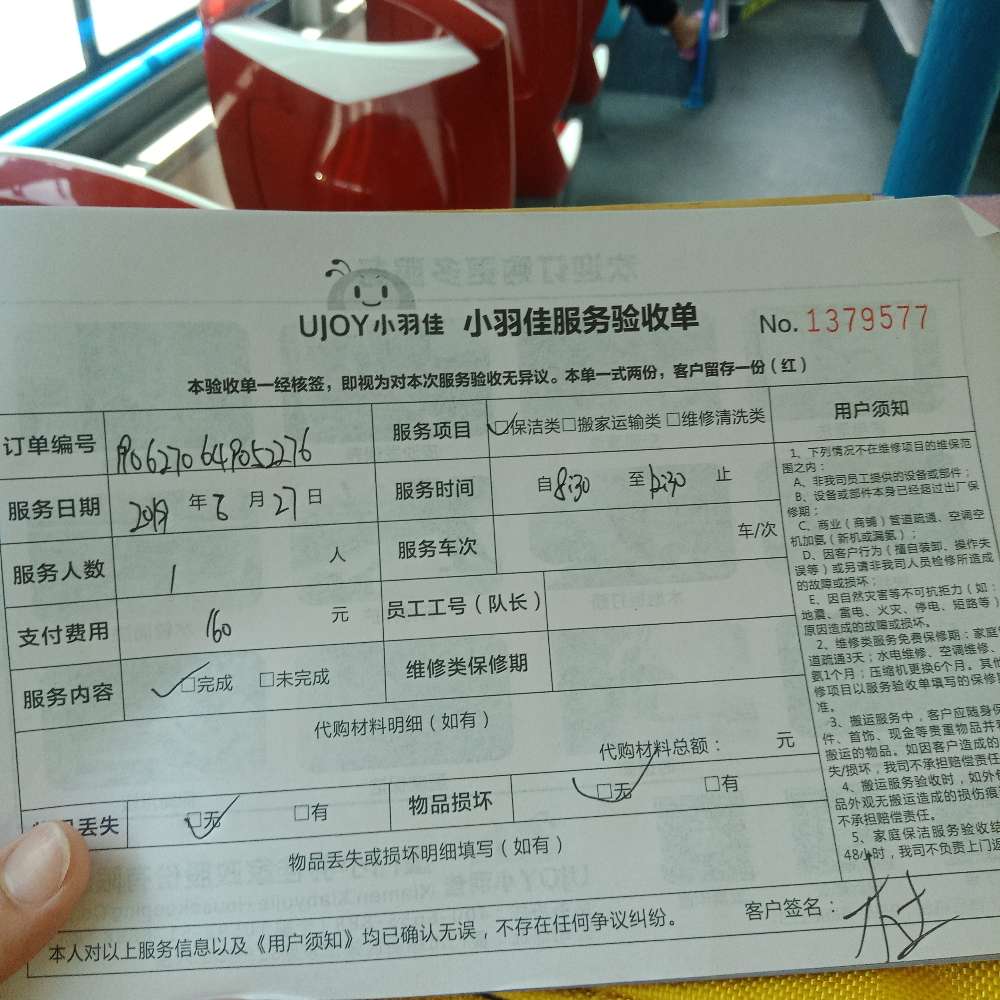 UJOY小羽佳 小羽佳服务验收单 No. 1379577
本验收单一经核签，即视为对本次服务验收无异议。本单一式两份，客户留存一份（红）
订单编号 1906270649052276 服务项目 □保洁类□搬家运输类 □维修清洗类
服务日期 2019 年 6 月 27 日 服务时间 自 8:30 至 12:30 止
服务人数 1 人 服务车次 车/次
支付费用 160 元 员工工号（队长）
服务内容 □完成 □未完成 维修类保修期
代购材料明细（如有）
代购材料总额： 元
丢失 □无 □有 物品损坏 □无 □有
物品丢失或损坏明细填写（如有）
本人对以上服务信息以及《用户须知》均已确认无误，不存在任何争议纠纷。
客户签名：
用户须知
1、下列情况不在维修项目的维保范
围之内：
A、非我司员工提供的设备或部件；
B、设备或部件本身已经超过出厂保
修期；
C、商业（商铺）管道疏通、空调空
机加氨（新机或漏氨）；
D、因客户行为（擅自装卸、操作失
误等）或另请非我司人员检修所造成
的故障或损坏；
E、因自然灾害等不可抗拒力（如：
地震、雷电、火灾、停电、短路等）
原因造成的故障或损坏。
2、维修类服务免费保修期：家庭
道疏通3天；水电维修、空调维修、
氨1个月；压缩机更换6个月。其他
修项目以服务验收单填写的保修
准。
3、搬运服务中，客户应随身保
件、首饰、现金等贵重物品并
搬运的物品。如因客户造成的
失/损坏，我司不承担赔偿责任
4、搬运服务验收时，如外
品外观无搬运造成的损伤痕
不承担赔偿责任。
5、家庭保洁服务验收结
48小时，我司不负责上门返